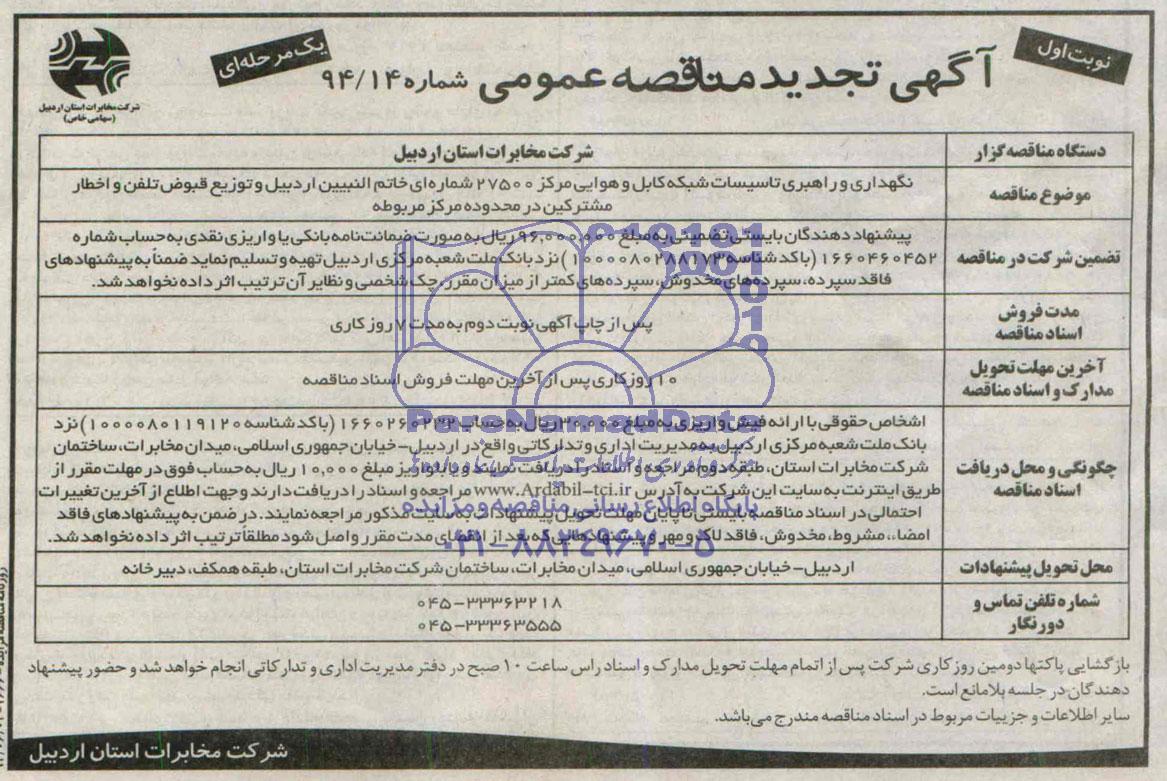 نوبت اول
آگهی تجدید مناقصه عمومی شماره ۹۴/۱۴
یک مرحله‌ای
شرکت مخابرات استان اردبیل
(سهامی خاص)
دستگاه مناقصه گزار
شرکت مخابرات استان اردبیل
موضوع مناقصه
نگهداری و راهبری تاسیسات شبکه کابل و هوایی مرکز ۲۷۵۰۰ شماره‌ای خاتم النبیین اردبیل و توزیع قبوض تلفن و اخطار
مشترکین در محدوده مرکز مربوطه
تضمین شرکت در مناقصه
پیشنهاد دهندگان بایستی تضمینی به مبلغ ۹۶,۰۰۰,۰۰۰ ریال به صورت ضمانت نامه بانکی یا واریزی نقدی به حساب شماره
۱۶۶۰۴۶۰۴۵۲ (با کد شناسه ۱۰۰۰۰۸۰۲۸۸۱۷۳) نزد بانک ملت شعبه مرکزی اردبیل تهیه و تسلیم نماید ضمناً به پیشنهادهای
فاقد سپرده، سپرده‌های مخدوش، سپرده‌های کمتر از میزان مقرر، چک شخصی و نظایر آن ترتیب اثر داده نخواهد شد.
مدت فروش
اسناد مناقصه
پس از چاپ آگهی نوبت دوم به مدت ۷ روز کاری
آخرین مهلت تحویل
مدارک و اسناد مناقصه
۱۰ روز کاری پس از آخرین مهلت فروش اسناد مناقصه
چگونگی و محل دریافت
اسناد مناقصه
اشخاص حقوقی با ارائه فیش واریزی به مبلغ ۳۰,۰۰۰ ریال به حساب ۱۶۶۰۲۶۰۲۳۲ (با کد شناسه ۱۰۰۰۰۸۰۱۱۹۱۲۰) نزد
بانک ملت شعبه مرکزی اردبیل به مدیریت اداری و تدارکاتی واقع در اردبیل-خیابان جمهوری اسلامی، میدان مخابرات، ساختمان
شرکت مخابرات استان، طبقه دوم مراجعه و اسناد را دریافت نمایند و یا با واریز مبلغ ۱۰,۰۰۰ ریال به حساب فوق در مهلت مقرر از
طریق اینترنت به سایت این شرکت به آدرس www.Ardabil-tci.ir مراجعه و اسناد را دریافت دارند و جهت اطلاع از آخرین تغییرات
احتمالی در اسناد مناقصه بایستی تا پایان مهلت تحویل پیشنهادات به سایت مذکور مراجعه نمایند. در ضمن به پیشنهادهای فاقد
امضاء، مشروط، مخدوش، فاقد لاک و مهر و پیشنهادهایی که بعد از انقضای مدت مقرر واصل شود مطلقا ترتیب اثر داده نخواهد شد.
محل تحویل پیشنهادات
اردبیل- خیابان جمهوری اسلامی، میدان مخابرات، ساختمان شرکت مخابرات استان، طبقه همکف، دبیرخانه
شماره تلفن تماس و
دورنگار
۰۴۵-۳۳۳۶۳۲۱۸
۰۴۵-۳۳۳۶۳۵۵۵
بازگشایی پاکتها دومین روز کاری شرکت پس از اتمام مهلت تحویل مدارک و اسناد راس ساعت ۱۰ صبح در دفتر مدیریت اداری و تدارکاتی انجام خواهد شد و حضور پیشنهاد
دهندگان در جلسه بلامانع است.
سایر اطلاعات و جزییات مربوط در اسناد مناقصه مندرج می‌باشد.
شرکت مخابرات استان اردبیل
ParsNamadData
پایگاه اطلاع رسانی مناقصه و مزایده
۰۲۱-۸۸۳۴۹۶۷۰-۵